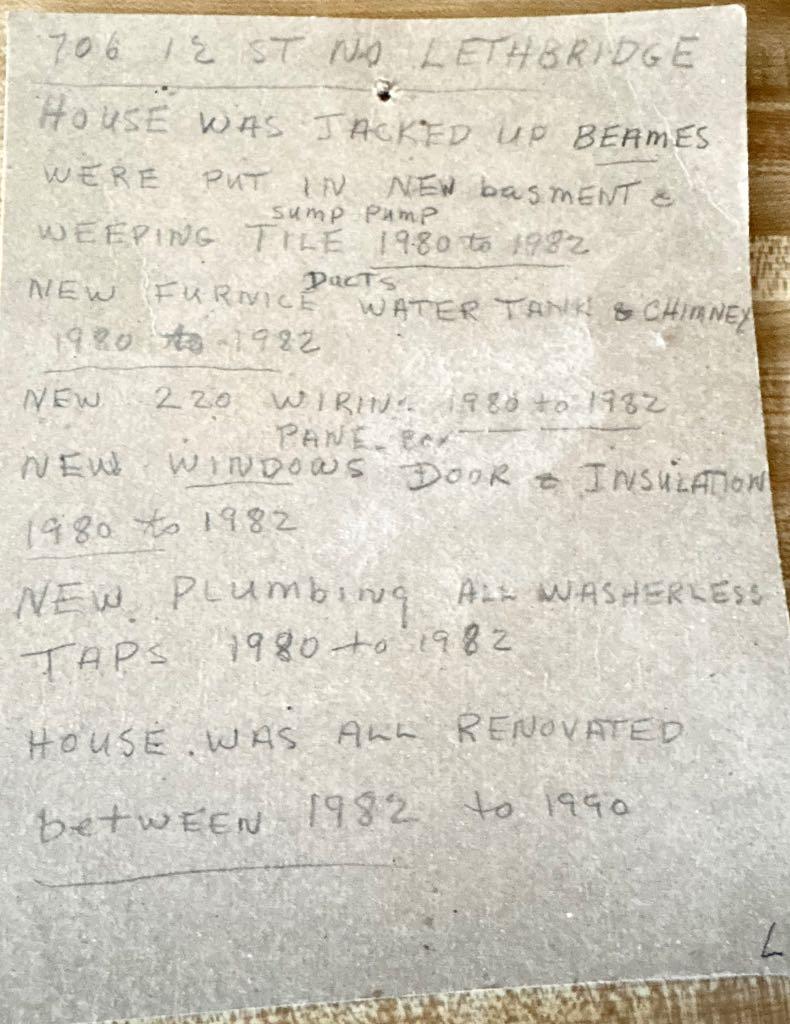 706 12 ST NO LETHBRIDGE
HOUSE WAS JACKED UP BEAMES
WERE PUT IN NEW basMENT &
SUMP PUMP
WEEPING TILE 1980 to 1982
DUCTS
NEW FURNICE WATER TANK & CHIMNEY
1980 to 1982
NEW 220 WIRING 1980 to 1982
PANEL BOX
NEW WINDOWS DOOR & INSULATION
1980 to 1982
NEW PLUMbING ALL WASHERLESS
TAPS 1980 to 1982
HOUSE WAS ALL RENOVATED
betWEEN 1982 to 1990
L